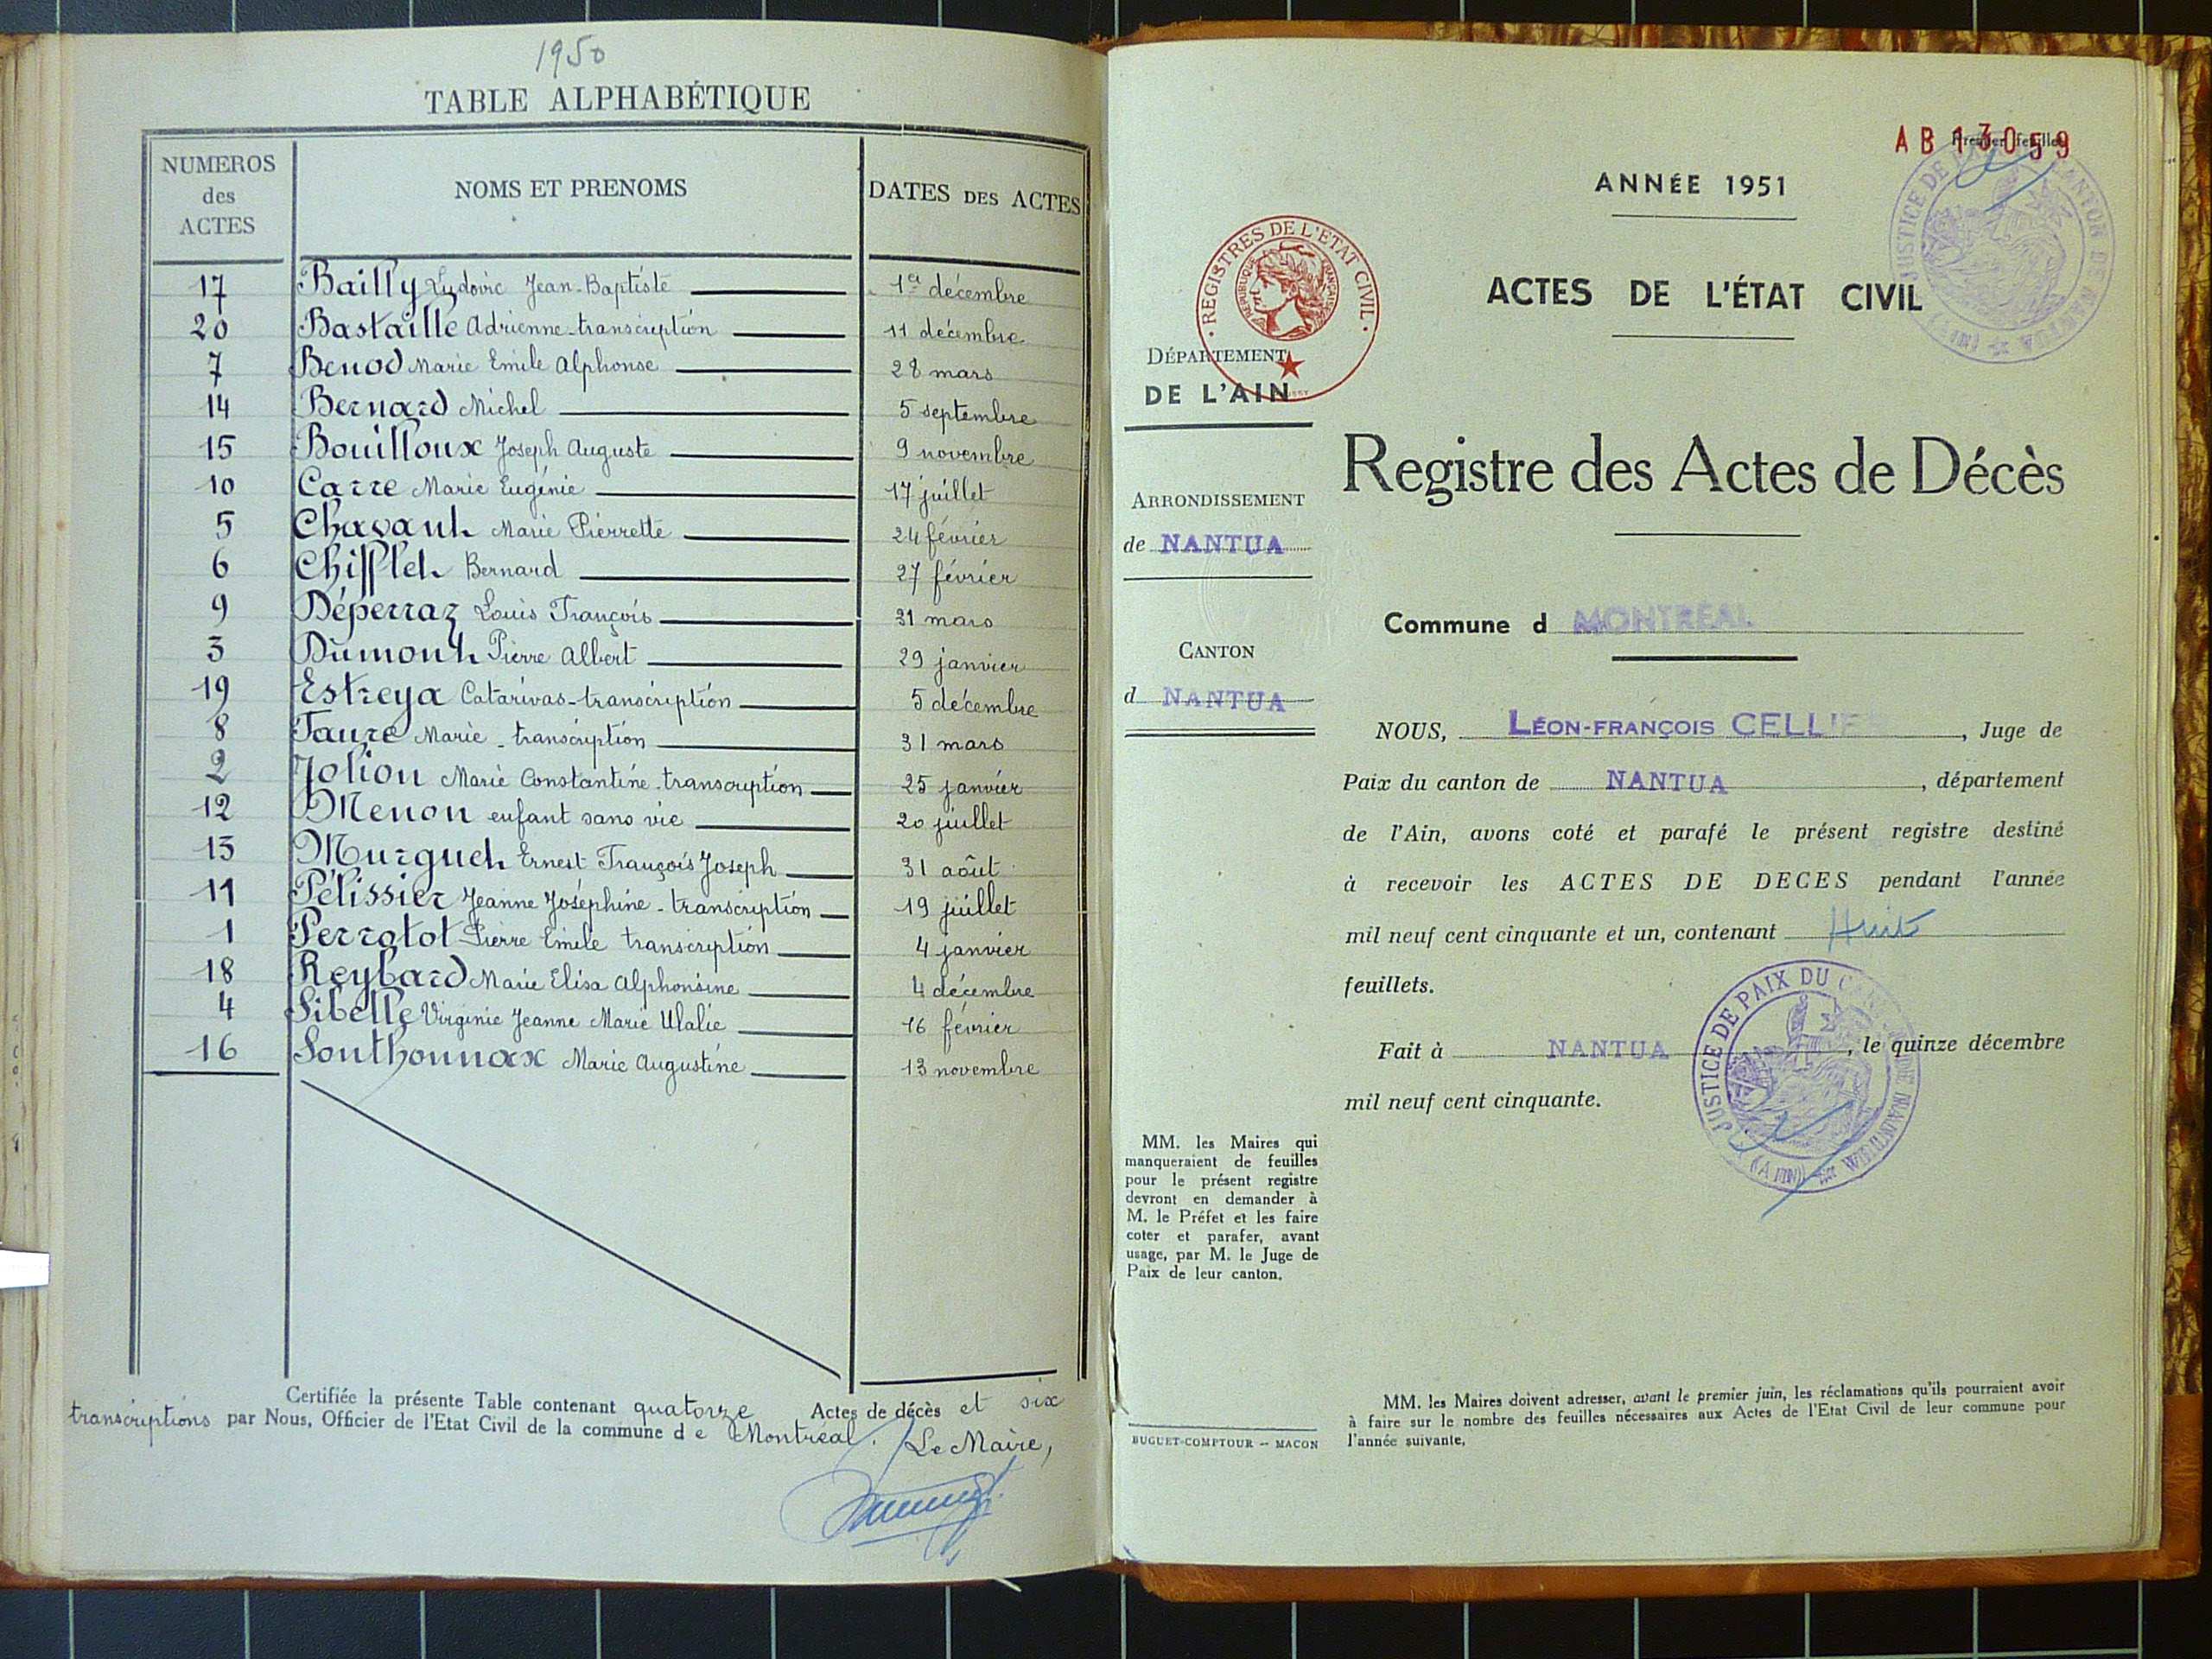 1950
TABLE ALPHABÉTIQUE
NUMEROS des ACTES
NOMS ET PRENOMS
DATES DES ACTES
17 Bailly Ludovic Jean-Baptiste 1er décembre
20 Bastaille Adrienne-transcription 11 décembre
7 Benod Marie Emile Alphonse 28 mars
14 Bernard Michel 5 septembre
15 Bouilloux Joseph Auguste 9 novembre
10 Carre Marie Eugénie 17 juillet
5 Chavant Marie Pierrette 24 février
6 Chifflet Bernard 27 février
9 Déperraz Louis François 31 mars
3 Dumont Pierre Albert 29 janvier
19 Estreya Catarivas-transcription 5 décembre
8 Faure Marie - transcription 31 mars
2 Jolion Marie Constantine-transcription 25 janvier
12 Menon enfant sans vie 20 juillet
13 Murguet Ernest François Joseph 31 août
11 Pélissier Jeanne Joséphine - transcription 19 juillet
1 Perrotot Pierre Emile transcription 4 janvier
18 Reybard Marie Elisa Alphonsine 4 décembre
4 Sibelle Virginie Jeanne Marie Ulalie 16 février
16 Southonnax Marie Augustine 13 novembre
Certifiée la présente Table contenant quatorze Actes de décès et six
transcriptions par Nous, Officier de l'Etat Civil de la commune d e Montréal.
Le Maire,
AB 13059
Premier feuillet
ANNÉE 1951
ACTES DE L'ÉTAT CIVIL
JUSTICE DE CANTON DE NANTUA
REGISTRES DE L'ETAT CIVIL
REPUBLIQUE FRANÇAISE
DÉPARTEMENT
DE L'AIN
ARRONDISSEMENT
de NANTUA
CANTON
d NANTUA
Registre des Actes de Décès
Commune d MONTRÉAL
NOUS, LÉON-FRANÇOIS CELLIER, Juge de
Paix du canton de NANTUA, département
de l'Ain, avons coté et parafé le présent registre destiné
à recevoir les ACTES DE DECES pendant l'année
mil neuf cent cinquante et un, contenant Huit
feuillets.
Fait à NANTUA, le quinze décembre
mil neuf cent cinquante.
JUSTICE DE PAIX DU CANTON DE NANTUA (AIN)
MM. les Maires qui
manqueraient de feuilles
pour le présent registre
devront en demander à
M. le Préfet et les faire
coter et parafer, avant
usage, par M. le Juge de
Paix de leur canton.
BUGUET-COMPTOUR -- MACON
MM. les Maires doivent adresser, avant le premier juin, les réclamations qu'ils pourraient avoir
à faire sur le nombre des feuilles nécessaires aux Actes de l'Etat Civil de leur commune pour
l'année suivante.